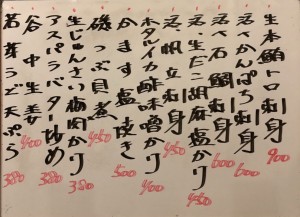 生本鮪トロ刺身 900
活〆かんぱち刺身 600
活〆石鯛刺身 600
活生だこ胡麻塩かけ 450
活帆立刺身 450
ホタルイカ酢味噌かけ 400
かます塩焼き 500
磯つぶ貝煮 450
生じゅんさい梅肉かけ 380
アスパラバター炒め 380
谷中生姜 400
若芽うど天ぷら 380